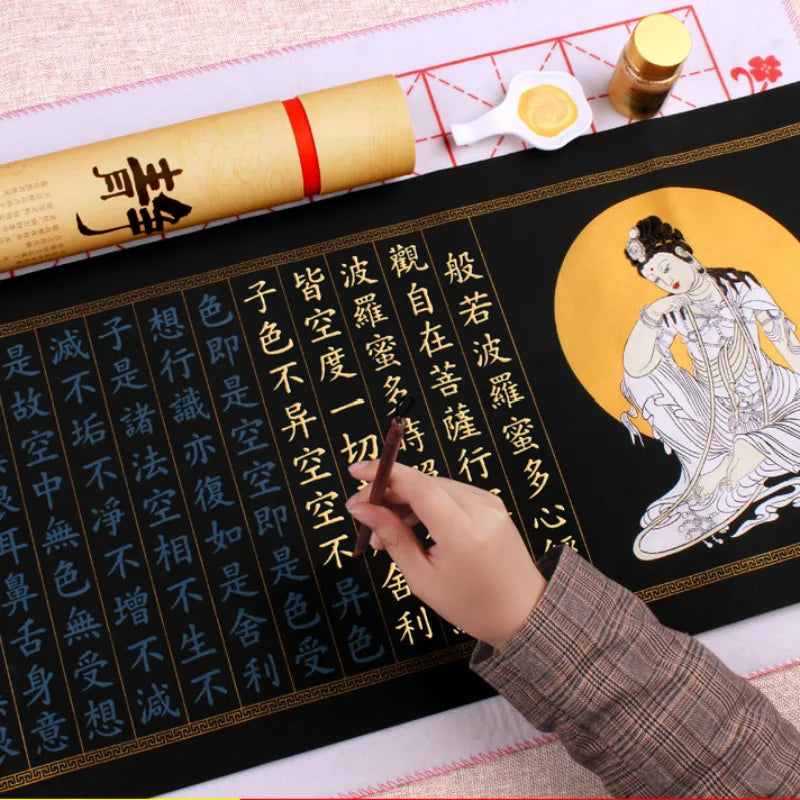 般若波羅蜜多心
觀自在菩薩行
波羅蜜多時照
皆空度一切 舍利
子色不异空空不异色
色即是空空即是色受
想行識亦復如是舍利
子是諸法空相不生不
滅不垢不淨不增不減
是故空中無色無受想
眼耳鼻舌身意
靜